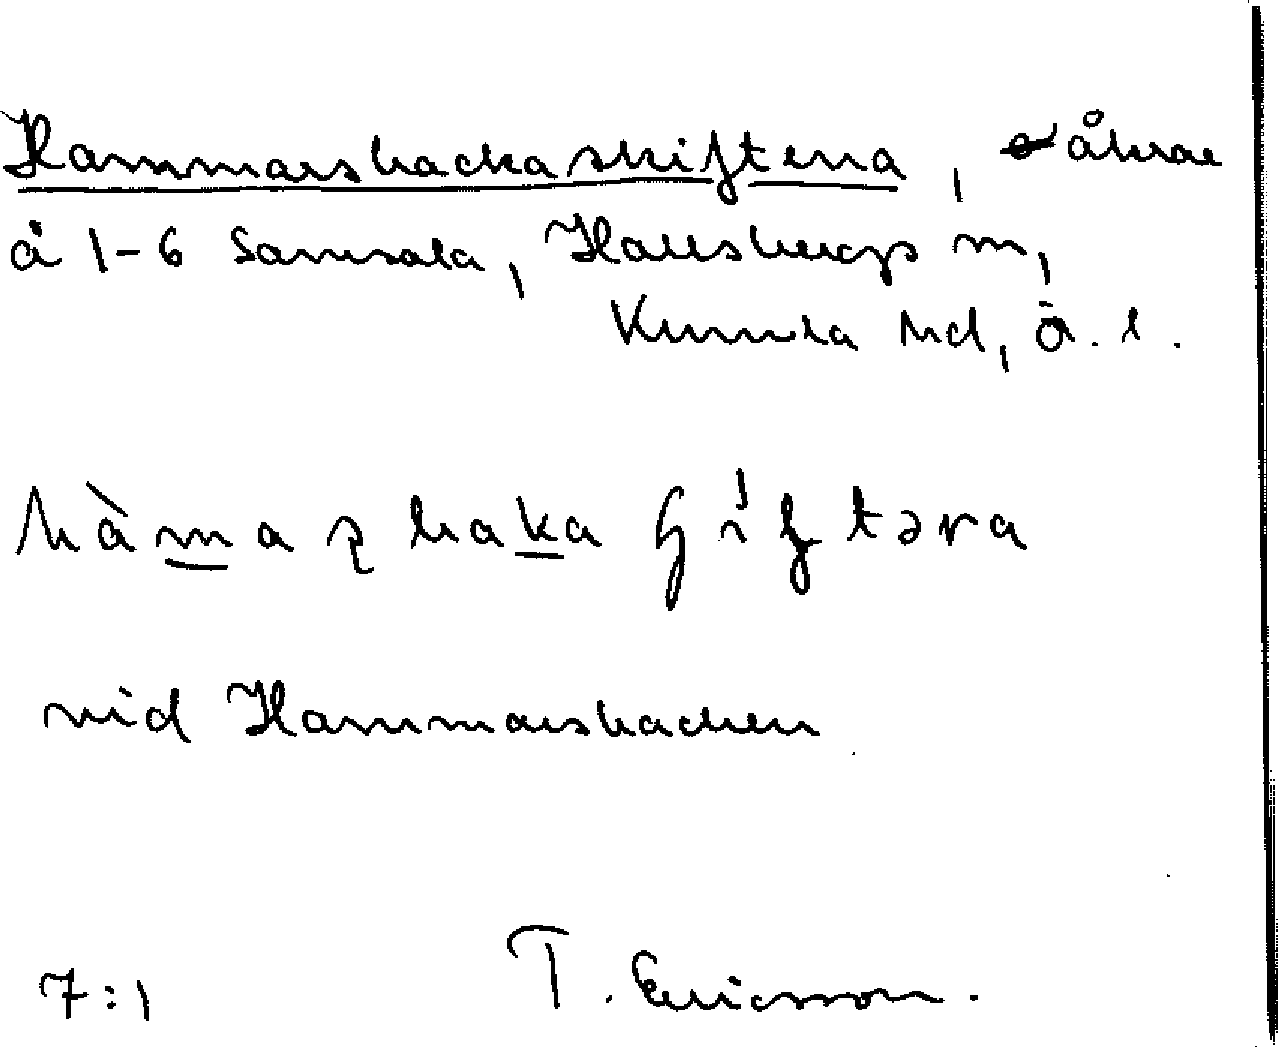 Hammarsbackaskiftena, åkrar
å 1-6 Sannala, Hallsbergs m,
Kumla hd, ö. l.
hàmaʂbaka ʃíftəra
vid Hammarsbacken
7:1 T. Ericsson.